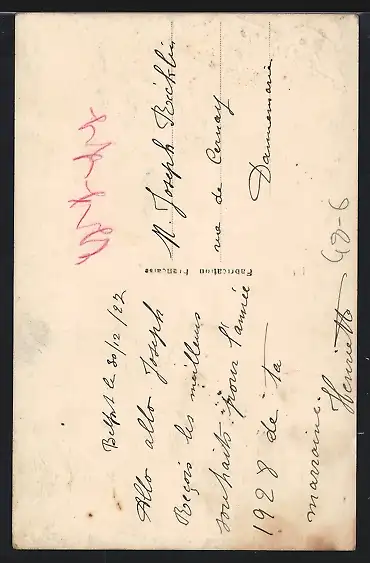 Belfort le 30/12/27
Allo allo Joseph
Reçois les meilleurs
souhaits pour l'année
1928 de ta
marraine
Henriette
Fabrication Française
M Joseph Ricklin
rue de Cernay
Dannemarie